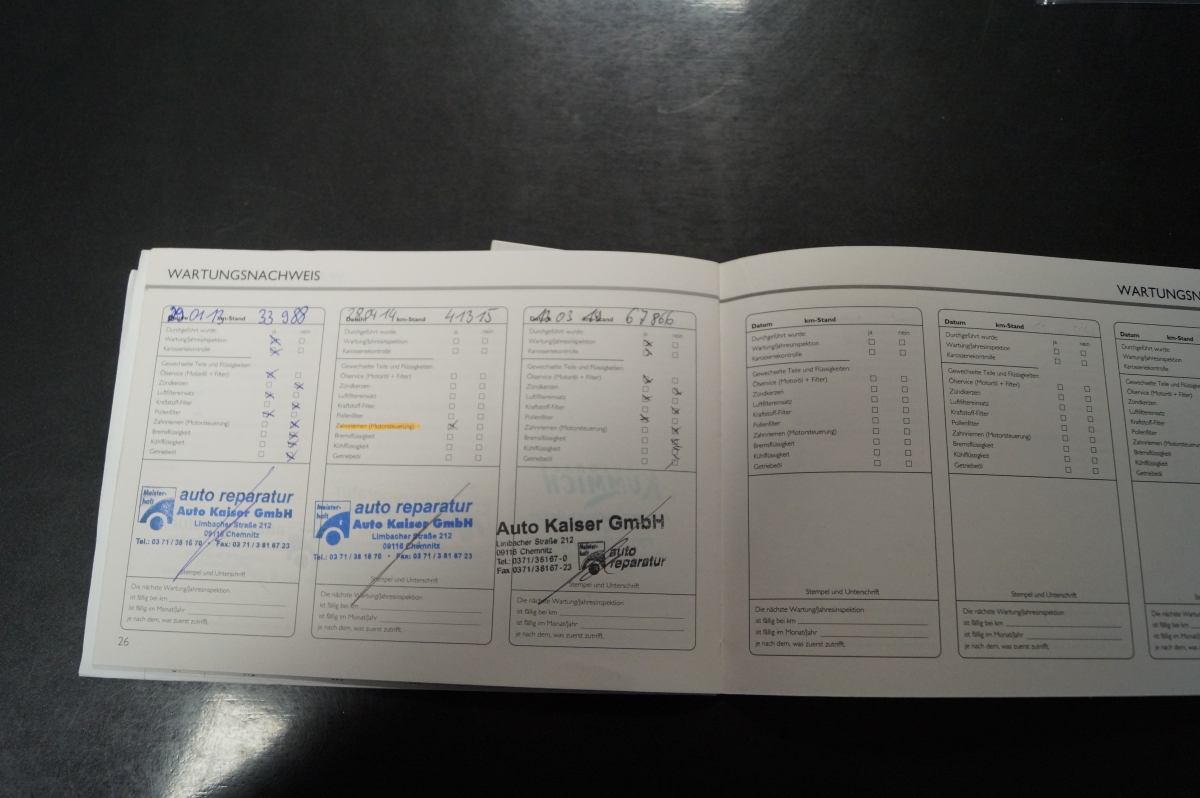 WARTUNGSNACHWEIS
29.01.13 km-Stand 33 988
Durchgeführt wurde: ja nein
Wartung/Jahresinspektion
Karosseriekontrolle
Gewechselte Teile und Flüssigkeiten:
Ölservice (Motoröl + Filter)
Zündkerzen
Luftfiltereinsatz
Kraftstoff-Filter
Pollenfilter
Zahnriemen (Motorsteuerung)
Bremsflüssigkeit
Kühlflüssigkeit
Getriebeöl
Meister-
haft
auto reparatur
Auto Kaiser GmbH
Limbacher Straße 212
09116 Chemnitz
Tel.: 03 71 / 38 16 70 • Fax: 03 71 / 3 81 67 23
Stempel und Unterschrift
Die nächste Wartung/Jahresinspektion
ist fällig bei km
ist fällig im Monat/Jahr
je nach dem, was zuerst zutrifft.
26
Datum km-Stand 41315
Durchgeführt wurde: ja nein
Wartung/Jahresinspektion
Karosseriekontrolle
Gewechselte Teile und Flüssigkeiten:
Ölservice (Motoröl + Filter)
Zündkerzen
Luftfiltereinsatz
Kraftstoff-Filter
Pollenfilter
Zahnriemen (Motorsteuerung)
Bremsflüssigkeit
Kühlflüssigkeit
Getriebeöl
Meister-
haft
auto reparatur
Auto Kaiser GmbH
Limbacher Straße 212
09116 Chemnitz
Tel.: 03 71 / 38 16 70 • Fax: 03 71 / 3 81 67 23
Stempel und Unterschrift
Die nächste Wartung/Jahresinspektion
ist fällig bei km
ist fällig im Monat/Jahr
je nach dem, was zuerst zutrifft.
Datum km-Stand 67866
Durchgeführt wurde: ja nein
Wartung/Jahresinspektion
Karosseriekontrolle
Gewechselte Teile und Flüssigkeiten:
Ölservice (Motoröl + Filter)
Zündkerzen
Luftfiltereinsatz
Kraftstoff-Filter
Pollenfilter
Zahnriemen (Motorsteuerung)
Bremsflüssigkeit
Kühlflüssigkeit
Getriebeöl
Auto Kaiser GmbH
Limbacher Straße 212
09116 Chemnitz
Tel.: 0371/38167-0
Fax 0371/38167-23
Meister-
haft
auto
reparatur
Stempel und Unterschrift
Die nächste Wartung/Jahresinspektion
ist fällig bei km
ist fällig im Monat/Jahr
je nach dem, was zuerst zutrifft.
WARTUNGSN
Datum km-Stand
Durchgeführt wurde: ja nein
Wartung/Jahresinspektion
Karosseriekontrolle
Gewechselte Teile und Flüssigkeiten:
Ölservice (Motoröl + Filter)
Zündkerzen
Luftfiltereinsatz
Kraftstoff-Filter
Pollenfilter
Zahnriemen (Motorsteuerung)
Bremsflüssigkeit
Kühlflüssigkeit
Getriebeöl
Stempel und Unterschrift
Die nächste Wartung/Jahresinspektion
ist fällig bei km
ist fällig im Monat/Jahr
je nach dem, was zuerst zutrifft.
Datum km-Stand
Durchgeführt wurde: ja nein
Wartung/Jahresinspektion
Karosseriekontrolle
Gewechselte Teile und Flüssigkeiten:
Ölservice (Motoröl + Filter)
Zündkerzen
Luftfiltereinsatz
Kraftstoff-Filter
Pollenfilter
Zahnriemen (Motorsteuerung)
Bremsflüssigkeit
Kühlflüssigkeit
Getriebeöl
Stempel und Unterschrift
Die nächste Wartung/Jahresinspektion
ist fällig bei km
ist fällig im Monat/Jahr
je nach dem, was zuerst zutrifft.
Datum km-Stand
Durchgeführt wurde:
Wartung/Jahresinspektion
Karosseriekontrolle
Gewechselte Teile und Flüssigkeiten
Ölservice (Motoröl + Filter)
Zündkerzen
Luftfiltereinsatz
Kraftstoff-Filter
Pollenfilter
Zahnriemen (Motorsteuerung)
Bremsflüssigkeit
Kühlflüssigkeit
Getriebeöl
Die nächste Wartung/Jahres
ist fällig bei km
ist fällig im Monat/Jahr
je nach dem, was zuerst zutrifft